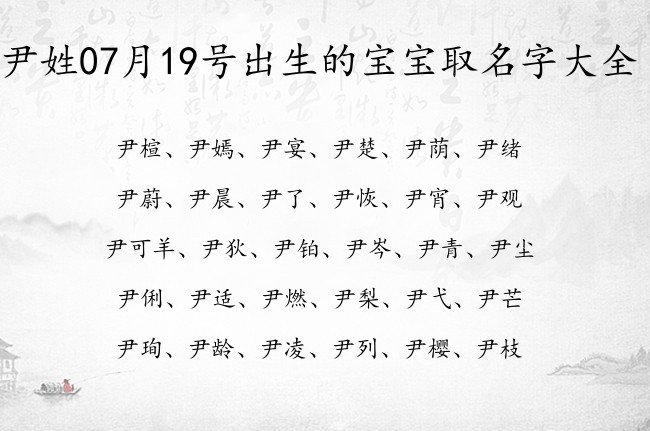 尹姓07月19号出生的宝宝取名字大全
尹楦、尹嫣、尹宴、尹楚、尹荫、尹绪
尹蔚、尹晨、尹了、尹恢、尹宵、尹观
尹可羊、尹狄、尹铂、尹岑、尹青、尹尘
尹俐、尹适、尹燃、尹梨、尹弋、尹芒
尹珣、尹龄、尹凌、尹列、尹樱、尹枝